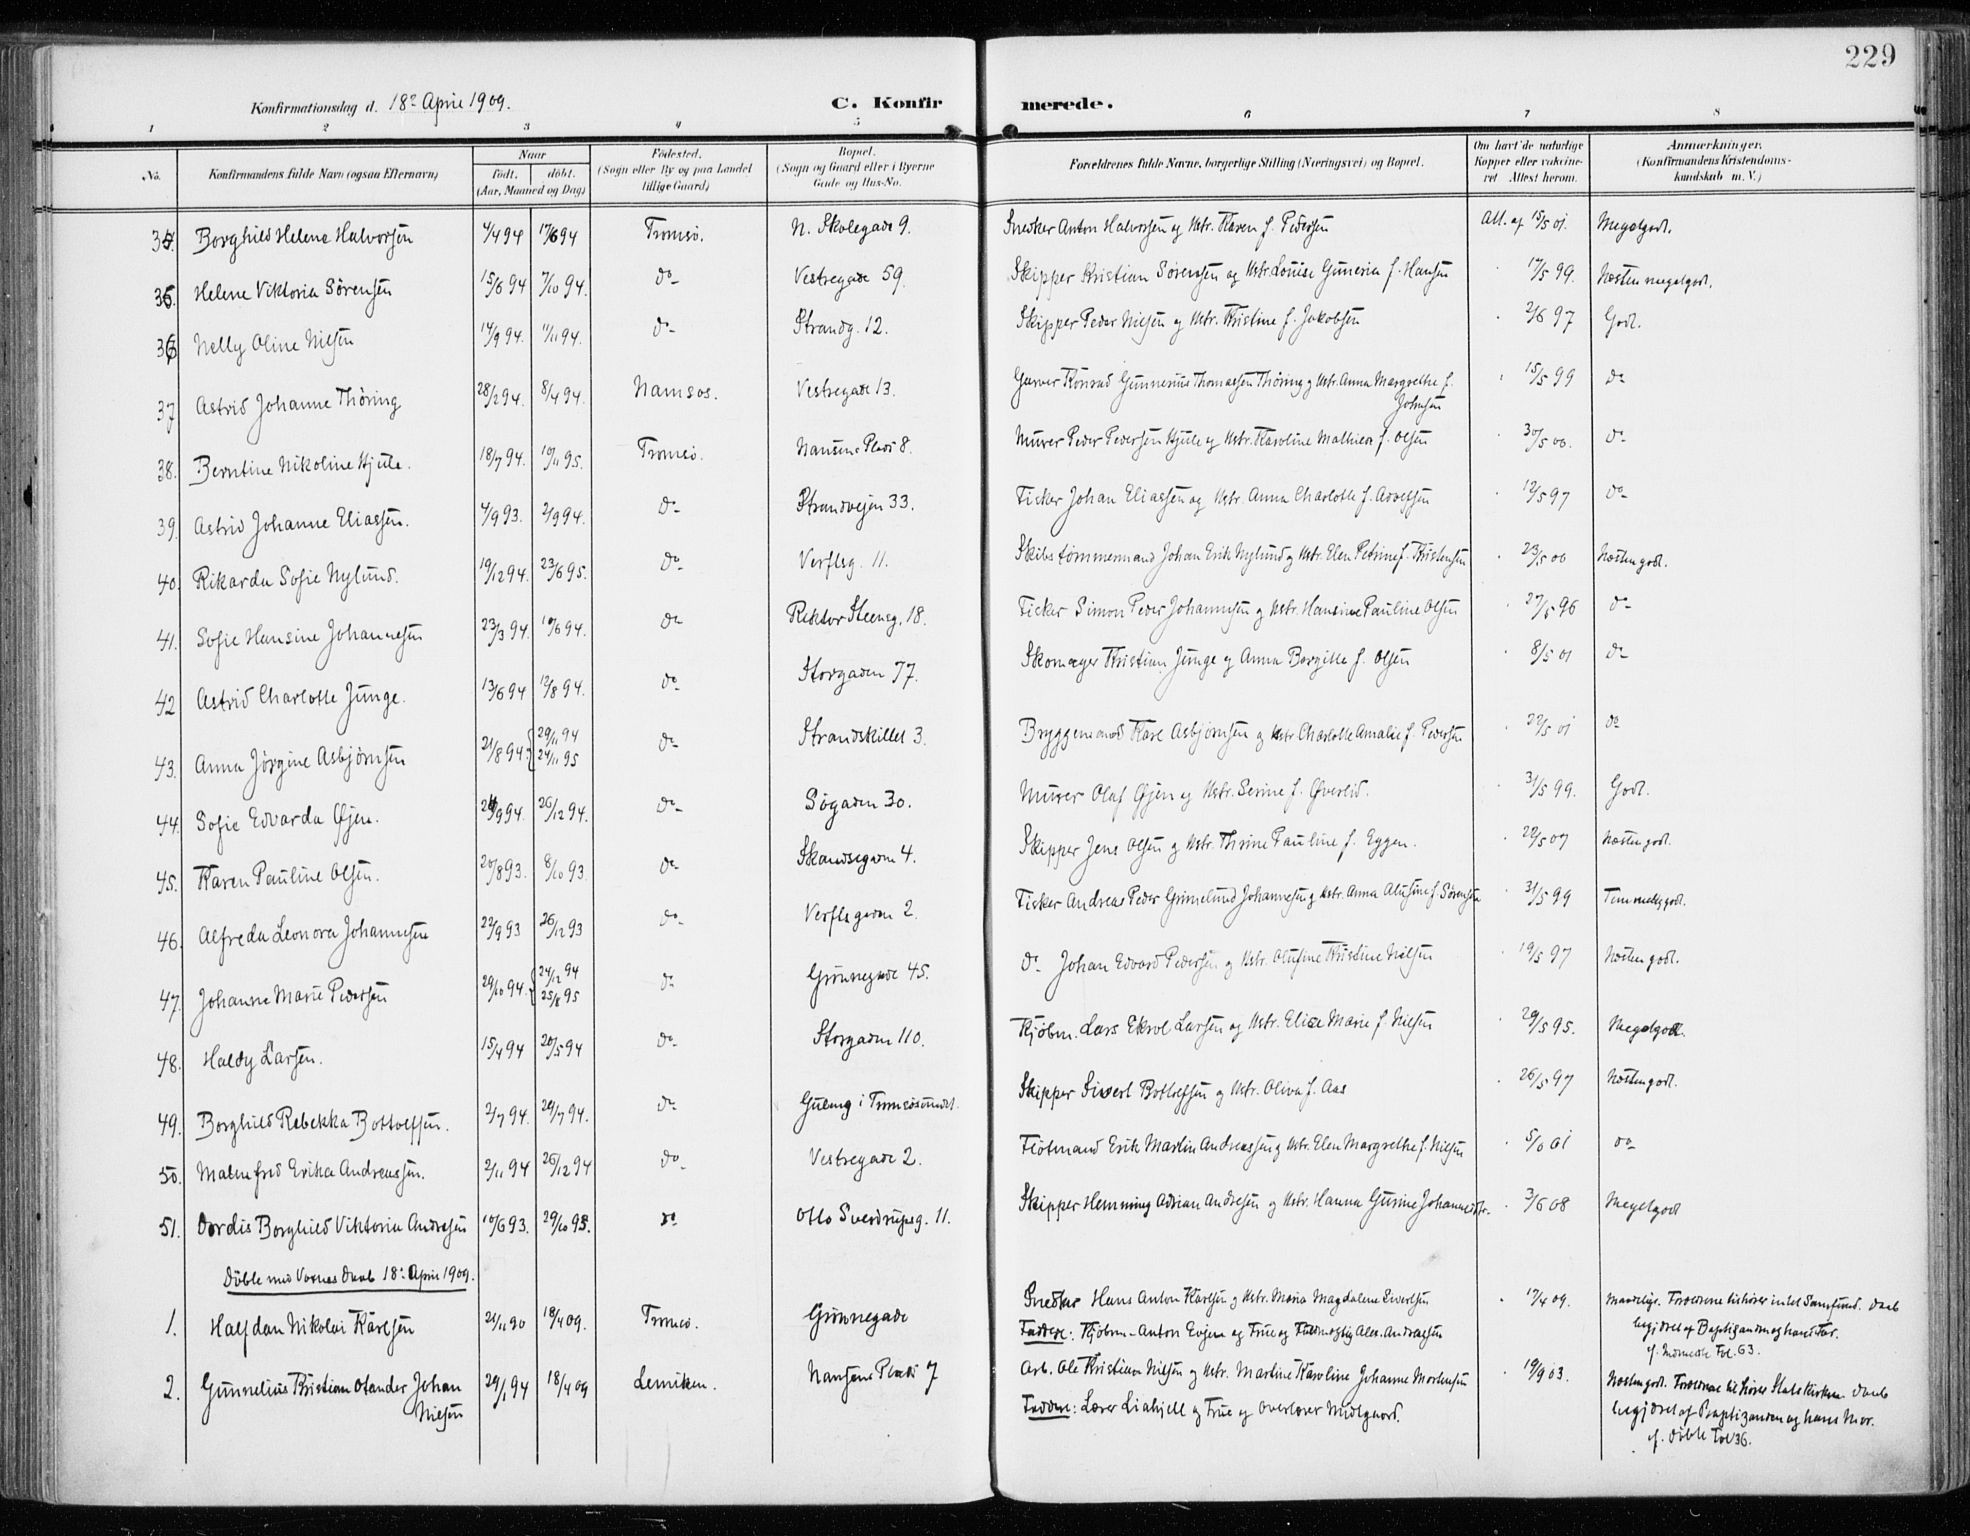 229
Konfirmationsdag d. 18de April 1909.
C. Konfirmerede.
1 2 3 4 5 6 7 8
No.
Konfirmandens fulde Navn (ogsaa Efternavn)
Naar
født. døbt.
(Aar, Maaned og Dag)
Fødested.
(Sogn eller By og paa Landet
tillige Gaard)
Bopæl.
(Sogn og Gaard eller i Byerne
Gade og Hus-No.
Forældrenes fulde Navne, borgerlige Stilling (Næringsvei) og Bopæl.
Om havt de naturlige
Kopper eller vaccine-
ret Attest herom.
Anmærkninger.
(Konfirmandens Kristendoms-
kundskab m. V.)
34. Borghild Helene Halvorsen 4/4 94 17/6 94 Tromsø. N. Skolegade 9. Snedker Anton Halvorsen og Hstr. Karen f. Pedersen Att. af 15/5 01. Megetgodt.
35. Helene Viktoria Sørensen 15/6 94 7/10 94. do Vestregade 59. Skipper Kristian Sørensen og Hstr. Louise Guneria f. Hansen 17/5 99. Næsten megetgodt.
36 Nelly Oline Nilsen 14/9 94. 11/11 94. do Strandg. 12. Skipper Peder Nilsen og Hstr. Kristine f. Jakobsen 2/6 97 Godt.
37 Astrid Johanne Thöring 28/2 94. 8/4 94. Namsos. Vestregade 13. Garver Konrad Gunnerius Thomassen Thöring og Hstr. Anna Margrethe f. Johnsen 15/5 99 do
38. Berntine Nikoline Hjule. 18/7 94. 10/11 95. Tromsø. Nansens Plads 8. Murer Peder Pedersen Hjule og Hstr. Karoline Mathiea f. Olsen 30/5 00. do
39. Astrid Johanne Eliassen. 4/9 93. 2/9 94. do Strandvejen 33. Fisker Johan Eliassen og Hstr. Anna Charlotte f. 12/5 97 do
40. Rikarda Sofie Nylund. 19/12 94. 23/6 95. do Verftsg. 11. Skibstømmermand Johan Erik Nylund og Hstr. Elen Petrine f. Kristensen 23/5 00 Næsten godt.
41. Sofie Hansine Johannesen 23/3 94. 10/6 94. do Rektor Steensg. 18. Fisker Simon Peder Johannesen og Hstr. Hansine Pauline Olsen 27/5 96 do
42 Astrid Charlotte Junge. 13/6 94 12/8 94. do Storgaden 77. Skomager Kristian Junge og Anna Bergitte f. Olsen 8/5 01 do
43. Anna Jørgine Asbjørnsen 21/8 94. 29/11 94 24/11 95 do Strandskillet 3. Bryggemand Karl Asbjørnsen og Hstr Charlotte Amalie f. Pedersen 22/5 01 do
44. Sofie Edvarda Gjen. 24/9 94. 26/12 94. do Søgaden 30. Murer Olaf Gjen og Hstr. Serine f. Øverlid. 31/5 99. Godt.
45. Karen Pauline Olsen. 20/8 93. 8/10 93. do Skandsegaden 4. Skipper Jens Olsen og Hstr. Thrine Pauline f. Eggen. 22/5 07 Næsten godt.
46. Alfreda Leonora Johannesen 22/9 93 26/12 93 do Verftsgaden 2. Fisker Andreas Peder Grimelund Johannesen og Hstr. Anna f. Sørensen 31/5 99 Temmelig godt.
47. Johanne Marie Pedersen 29/10 94. 24/12 94 25/8 95 do Grønnegade 45. do Johan Edvard Pedersen og Hstr. Olufine Kristine Nilsen 19/5 97 Næsten godt.
48. Haldy Larsen. 15/4 94 20/5 94 do Storgaden 110. Kjøbm. Lars Ekrol Larsen og Hstr. Elise Marie f. Nilsen 29/5 95. Megetgodt.
49. Borghild Rebekka Bottolfsen. 2/7 94. 29/7 94. do Guleng i Tromsøsundet. Skipper Sivert Bottolfsen og Hstr. Oliva f. Aas 26/5 97 Næsten godt.
50. Malmfrid Erika Andreassen. 2/11 94 26/12 94 do Vestregade 2. Flötmand Erik Martin Andreassen og Hstr. Elen Margrethe f. Nilsen 5/10 01 do
51. Dordis Borghild Viktoria Andresen 10/6 93. 29/10 93. do Otto Sverdrupsg. 11. Skipper Hemming Adrian Andresen og Hstr. Hanna Gurine Johannesdtr. 3/6 08 Megetgodt
Døbte med Voxnes Daab 18de April 1909.
1. Halfdan Nikolai Karlsen 21/11 90 18/4 09. Tromsø. Grønnegade Snedker Hans Anton Karlsen og Hstr. Maria Magdalene Sivertsen 17/4 09. Forældrene tilhører intet Samfund. Daab
Faddere: Kjøbm. Anton Evjen og Frue og Fuldmægtig Alex. Andreassen begjæret af Baptizanden og hans Far.
cf. Fol. 63.
2. Gunnelius Kristian Otander Johan 29/1 94 18/4 09 Lenviken. Nansens Plads 7 Arb. Ole Kristian Nilsen og Hstr. Martine Karoline Johanne Mortensen 19/9 03. Næsten godt. Forældrene tilhører Statskirken. Daab
Nilsen Faddere: Lærer Liahjell og Frue og Overlærer Midtgaard. begjæret af Baptizanden og hans Mor.
cf. Døbte Fol 36.